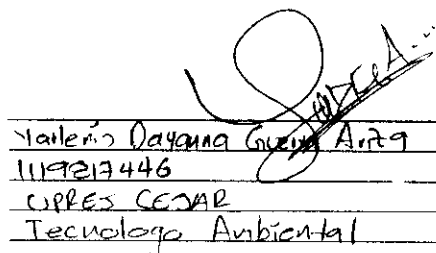 Yarleris Dayanna Guerra Ariza
1119217446
CIPRES CESAR
Tecnologo Ambiental